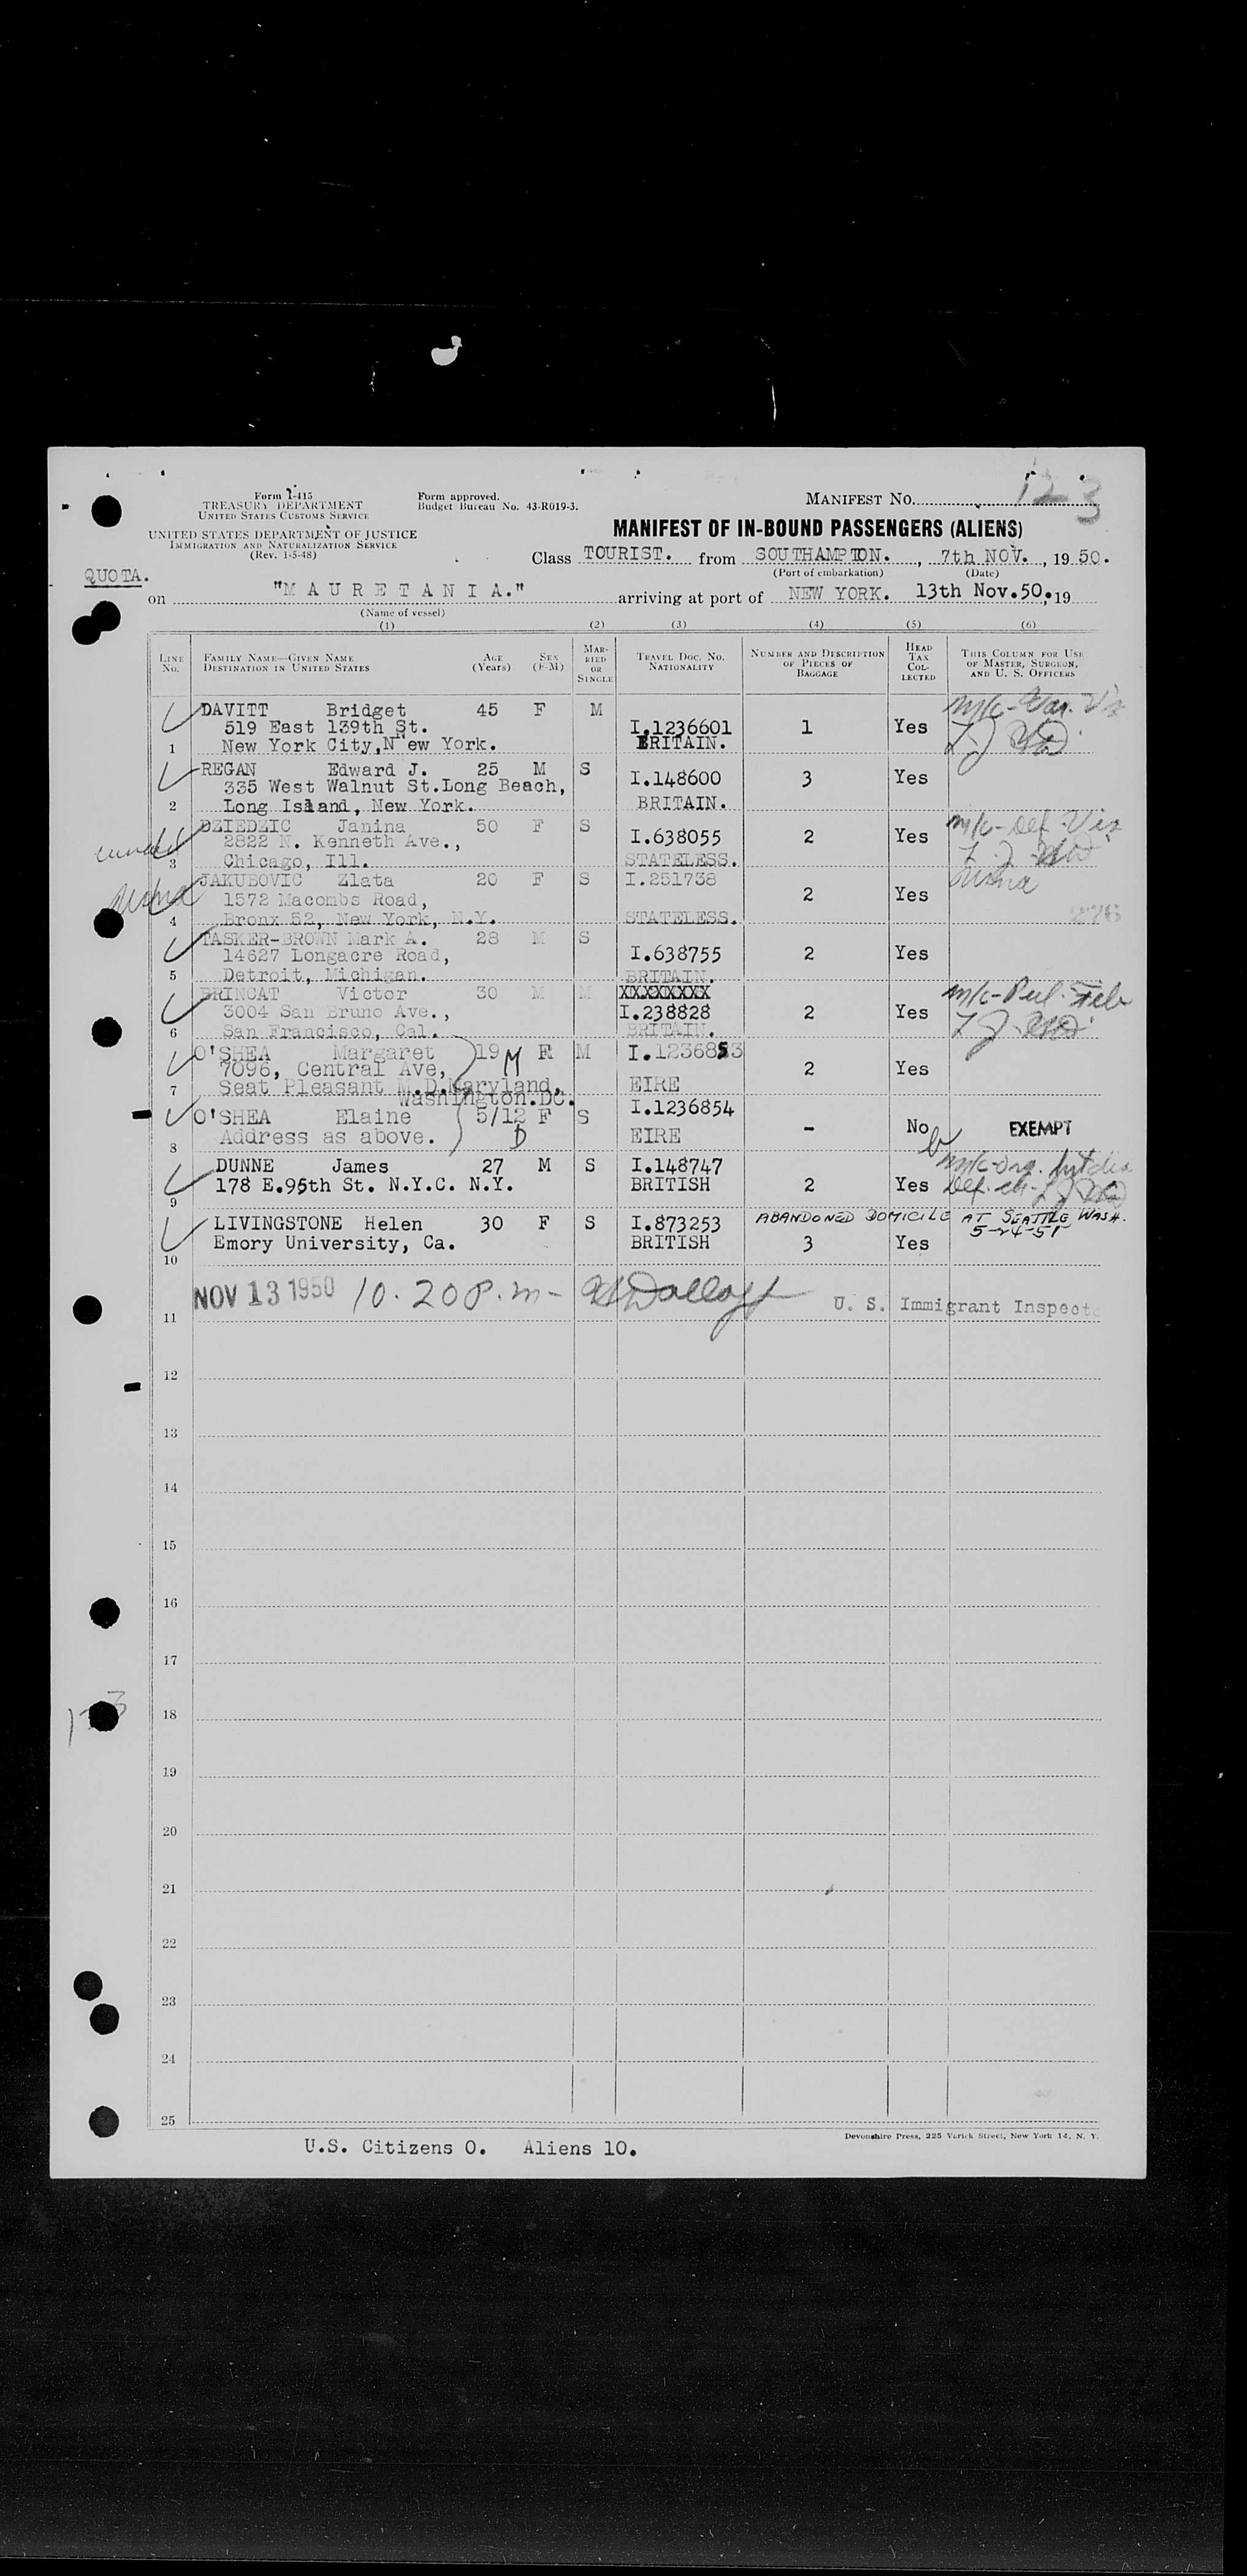 Form I-415
TREASURY DEPARTMENT
UNITED STATES CUSTOMS SERVICE
UNITED STATES DEPARTMENT OF JUSTICE
IMMIGRATION AND NATURALIZATION SERVICE
(Rev. 1-5-48)
Form approved.
Budget Bureau No. 43-R019-3.
MANIFEST NO. 123
MANIFEST OF IN-BOUND PASSENGERS (ALIENS)
Class TOURIST. from SOUTHAMPTON. , 7th NOV. , 19 50.
(Port of embarkation) (Date)
QUOTA.
on "M A U R E T A N I A." arriving at port of NEW YORK. 13th Nov.50. 19
(Name of vessel)
(1) (2) (3) (4) (5) (6)
LINE NO. FAMILY NAME—GIVEN NAME DESTINATION IN UNITED STATES AGE (Years) SEX (F-M) MARRIED OR SINGLE TRAVEL DOC. NO. NATIONALITY NUMBER AND DESCRIPTION OF PIECES OF BAGGAGE HEAD TAX COLLECTED THIS COLUMN FOR USE OF MASTER, SURGEON, AND U. S. OFFICERS
DAVITT Bridget 45 F M
519 East 139th St. I.1236601 1 Yes
1 New York City,N"ew York. BRITAIN.
REGAN Edward J. 25 M S
335 West Walnut St.Long Beach, I.148600 3 Yes
2 Long Island, New York. BRITAIN.
DZIEDZIC Janina 50 F S m/c-Def. Vis
2822 N. Kenneth Ave., I.638055 2 Yes
3 Chicago, Ill. STATELESS.
JAKUBOVIC Zlata 20 F S I.251738
1572 Macombs Road, 2 Yes
4 Bronx 52, New York, N.Y. STATELESS. 276
TASKER-BROWN Mark A. 28 M S
14627 Longacre Road, I.638755 2 Yes
5 Detroit, Michigan. BRITAIN.
BRINCAT Victor 30 M M XXXXXXXX
3004 San Bruno Ave., I.238828 2 Yes
6 San Francisco, Cal. BRITAIN.
O'SHEA Margaret 19 M F M I.1236853
7096, Central Ave, 2 Yes
7 Seat Pleasant M.D.Maryland, EIRE
Washington.DC.
O'SHEA Elaine 5/12 F S I.1236854
Address as above. D - No EXEMPT
8 EIRE
DUNNE James 27 M S I.148747
178 E.95th St. N.Y.C. N.Y. BRITISH 2 Yes
9
LIVINGSTONE Helen 30 F S I.873253 ABANDONED DOMICILE AT SEATTLE, WASH.
5-24-51
Emory University, Ca. BRITISH 3 Yes
10
NOV 13 1950 10.20 P.m- U. S. Immigrant Inspect
11
12
13
14
15
16
17
123
18
19
20
21
22
23
24
25
U.S. Citizens 0. Aliens 10.
Devonshire Press, 225 Varick Street, New York 14, N. Y.